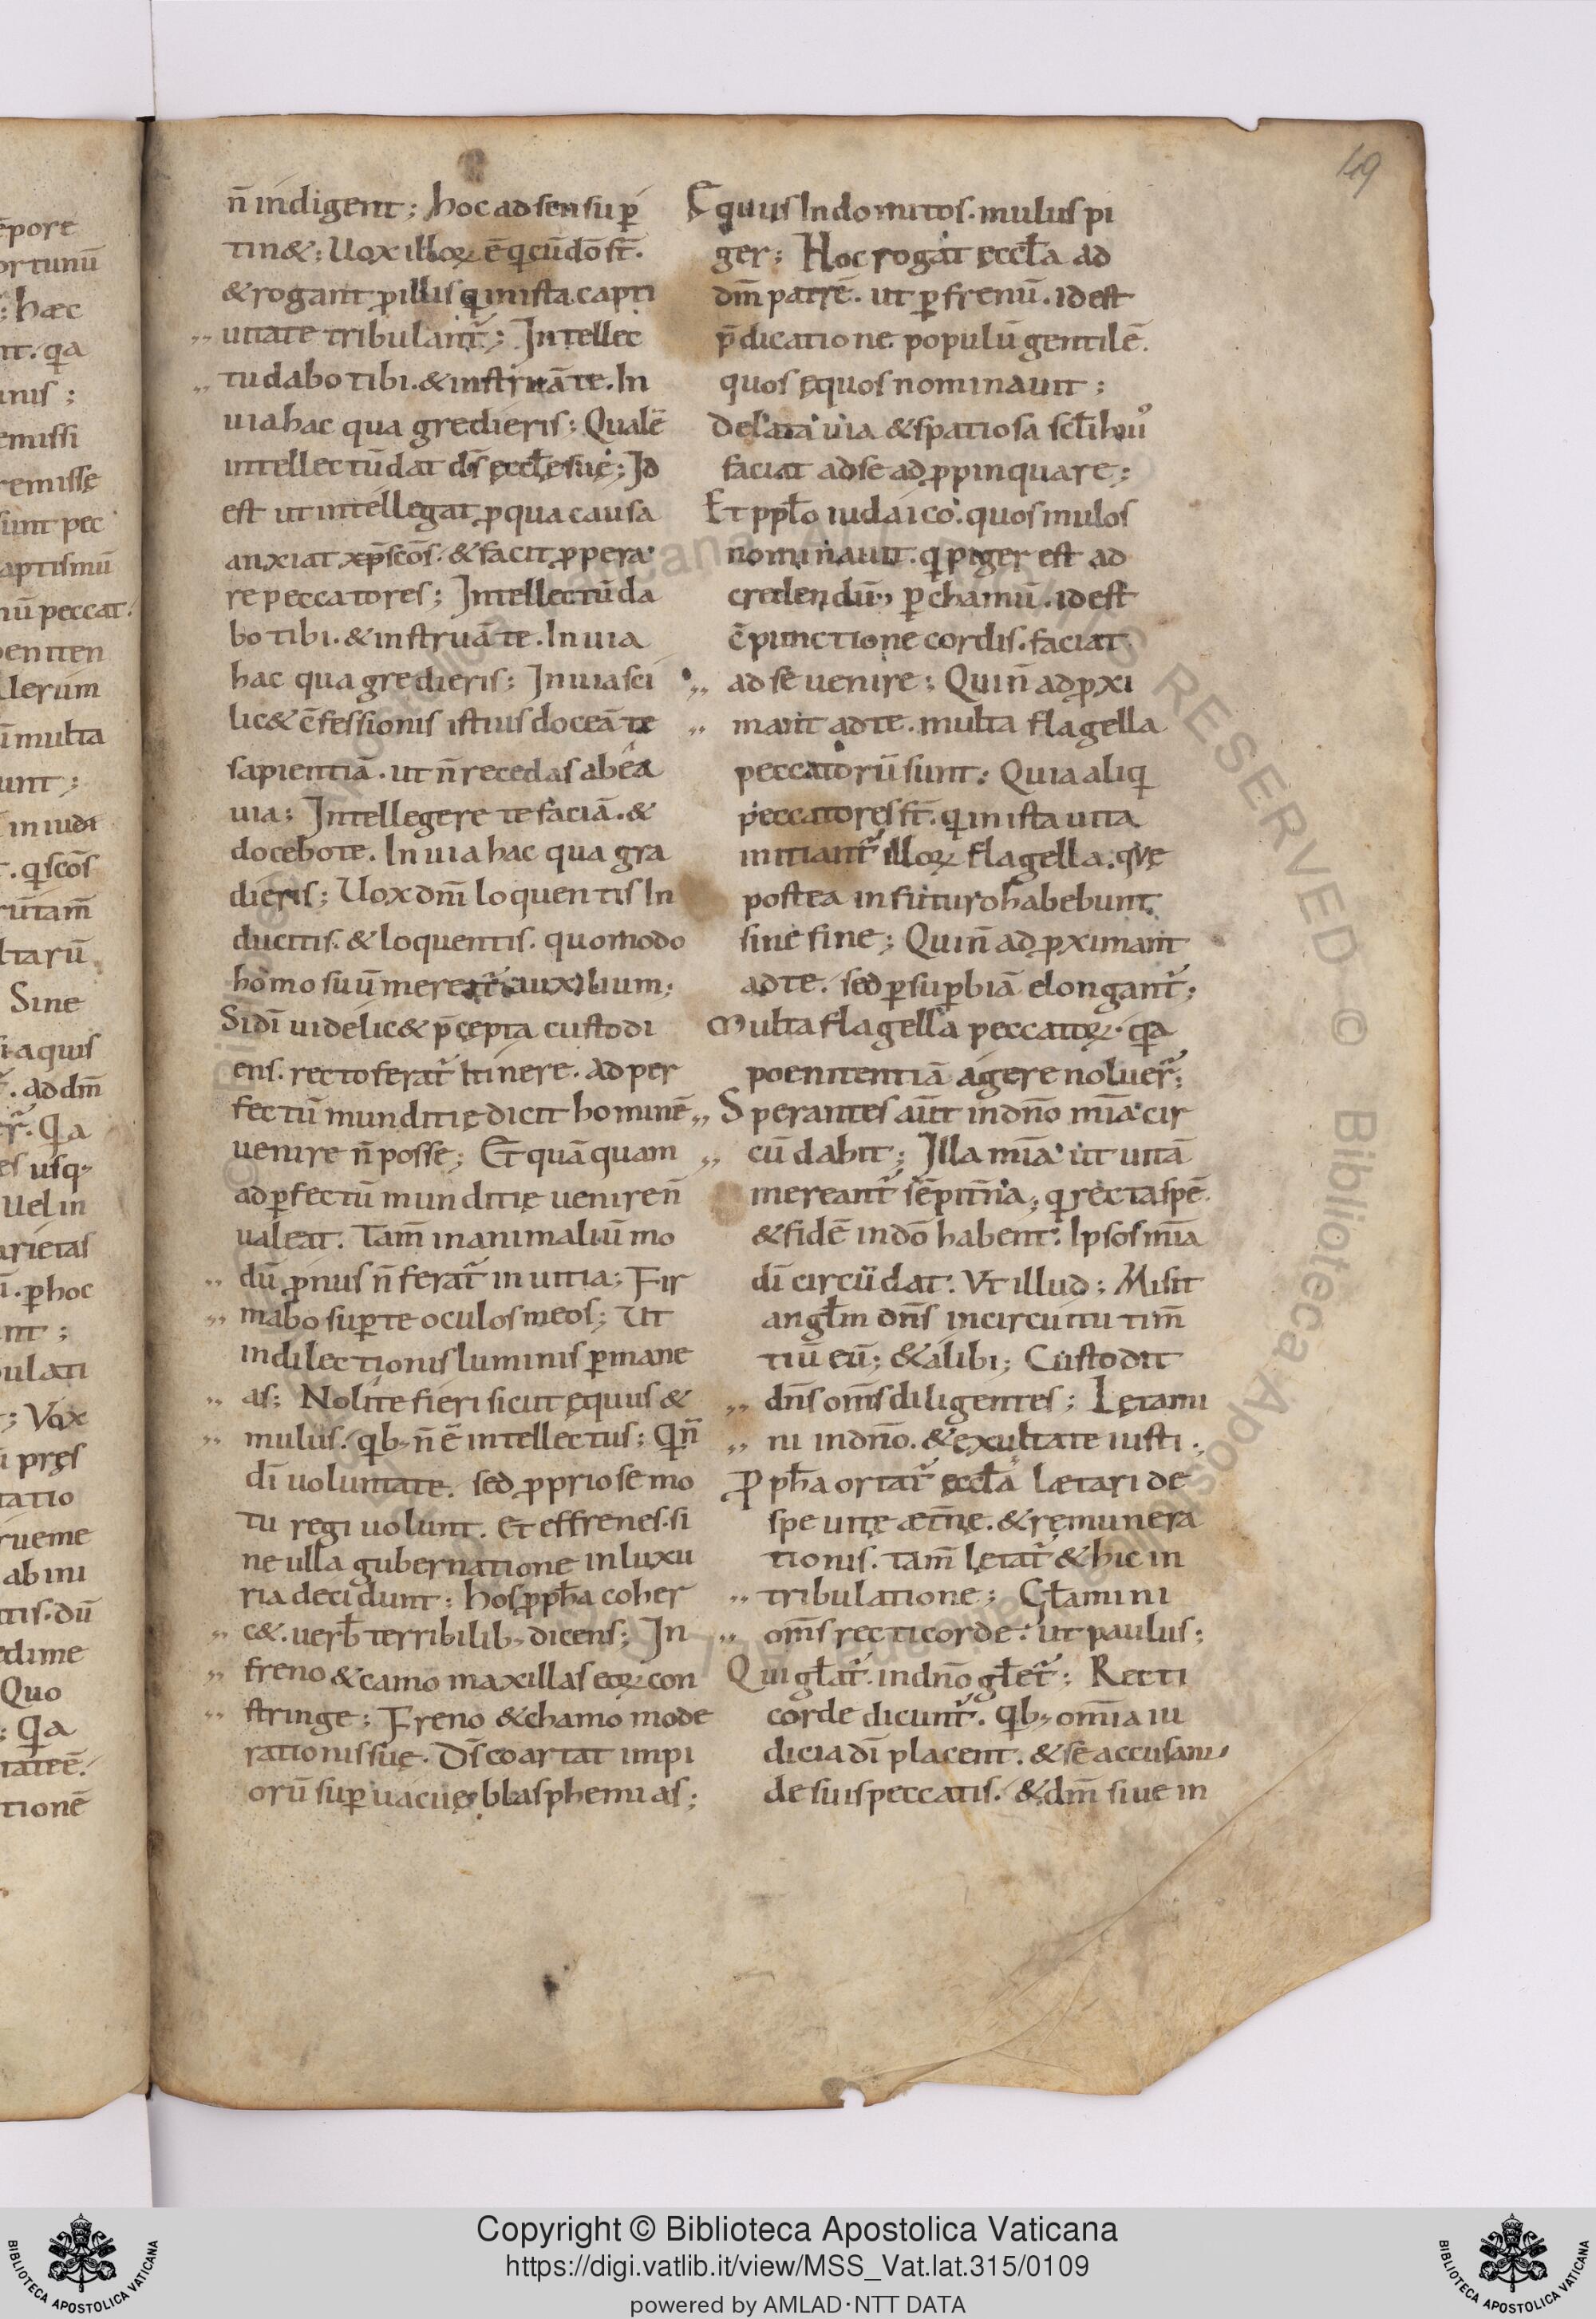 49
ēpore
ortunū
; hæc
nt. qa
inis ;
emissi
remisse
sunt pec
aptismū
nū peccat.
oeniten
lerum
ī multa
unt ;
in iudi
. q scōs
rūtam̄
ltarū
Sine
si aquis
. ad dm̄
Qa
es usq,
uel in
arietas
phoc
nt ;
ulati
; Vox
pręs
tatio
rueme
ab ini
tis. dū
edime
Quo
; Qa
tateē.
tionē
n̄ indigent ; hoc ad sensu p̱
tin& ; Uox illoꝝ ē qi cū dō st̄.
& rogant p illis qi in ista capti
,, uitate tribulant᷑ ; Intellec
,, tu dabo tibi. & instruā te. In
uia hac qua gredieris ; Qualē
intellectū dat ds̄ ęccl̄ę suę ; Id
est ut intellegat p qua causa
anxiat xp̄s scōs. & facit ppera
re peccatores ; Intellectū da
bo tibi. & instruā te. In uia
hac qua gredieris ; In uia sci
lic& c̄fessionis istius doceā te
sapientiā. ut n̄ recedas ab ea
uia ; Intellegere te faciā. &
docebo te. In uia hac qua gra
dieris ; Uox dnī loquentis In
ducitis. & loquentis. quomodo
homo suū mereat᷑ auxilium ;
Sidī uidelic& p̄cepta custodi
ens. recto ferat᷑ Itinere. Ad per
fectū munditię dicit hominē
uenire n̄ posse ; Et quā quam
ad pfectū munditię uenire n̄
ualeat. Tam̄ in animaliū mo
,, dū pnus n̄ ferat᷑ in uitia ; Fir
,, mabo sup te oculos meos ; Ut
in dilectionis luminis pmane
,, as ; Nolite fieri sicut ęquus &
,, mulus. qb, n̄ ē intellectus ; Qi n̄
dī uoluntate. sed pprio se mo
tu regi uolunt. et effrenes. si
ne ulla gubernatione in luxu
ria decidunt ; hos pph̄a coher
,, c&. uerb̄ terribilib, dicens ; In
,, freno & camo maxillas eoꝝ con
,, stringe ; Freno & chamo mode
rationis suę. Ds̄ coartat impi
orū sup uacuę blasphemias ;
Equus Indomitos. mulus pi
ger ; Hoc rogat ęccl̄a ad
dm̄ patrē. ut p frenū. id est
p̄dicatione. populū gentilē.
quos ęquos nominauit ;
De lata uia & spatiosa scl̄i huī᷒
faciat ad se adppinquare ;
Et ppl̄o iudaico. quos mulos
nominauit. qi piger est ad
credendū, p chamū. id est
c̄punctione cordis. faciat
,, ad se uenire ; Qui n̄ adpxi
,, mant ad te. multa flagella
peccatorū sunt. Quia aliqi
peccatores st̄. qi in ista uita
initiant᷑ illoꝝ flagella. quę
postea in futuro habebunt.
sine fine ; Qui n̄ adpximant
ad te. sed p supbiā elongant᷑ ;
Multa flagella peccatoꝝ. qa
poenitentiā agere noluer᷑ ;
,, Sperantes aūt in dnō mīa cir
,, cū dabit ; Illa mīa ut uitā
mereant᷑ sēpitn̄a, qi recta spē
& fidē in dō habent. Ipsos mīa
dī circūdat. Vt illud ; Misit
angl̄m dn̄s in circuitu tim̄
tiū eū ; & alibi ; Custodit
,, dn̄s om̄s diligentes ; Lętami
,, ni in dnō. & exultate iusti.
Pph̄a ortat᷑ ęccl̄a lætari de
spe uitę ætn̄e. & remunera
tionis. tam̄ lętat᷑ & hic in
,, tribulatione ; Gl̄amini
,, om̄s recti corde. ut paulus ;
Qui gl̄at᷑. in dnō gl̄et᷑ ; Recti
corde dicunt᷑. qb, om̄ia iu
dicia dī placent. & se accusant
de suis peccatis. & dm̄ siue in
Copyright © Biblioteca Apostolica Vaticana
https://digi.vatlib.it/view/MSS_Vat.lat.315/0109
powered by AMLAD·NTT DATA
BIBLIOTECA APOSTOLICA VATICANA
BIBLIOTECA APOSTOLICA VATICANA